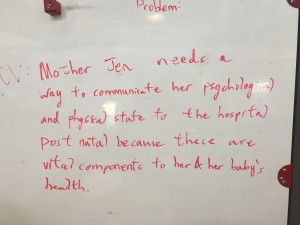 Problem:
Mother Jen needs a
way to communicate her psychological
and physical state to the hospital
post natal because these are
vital components to her & her baby's
health.